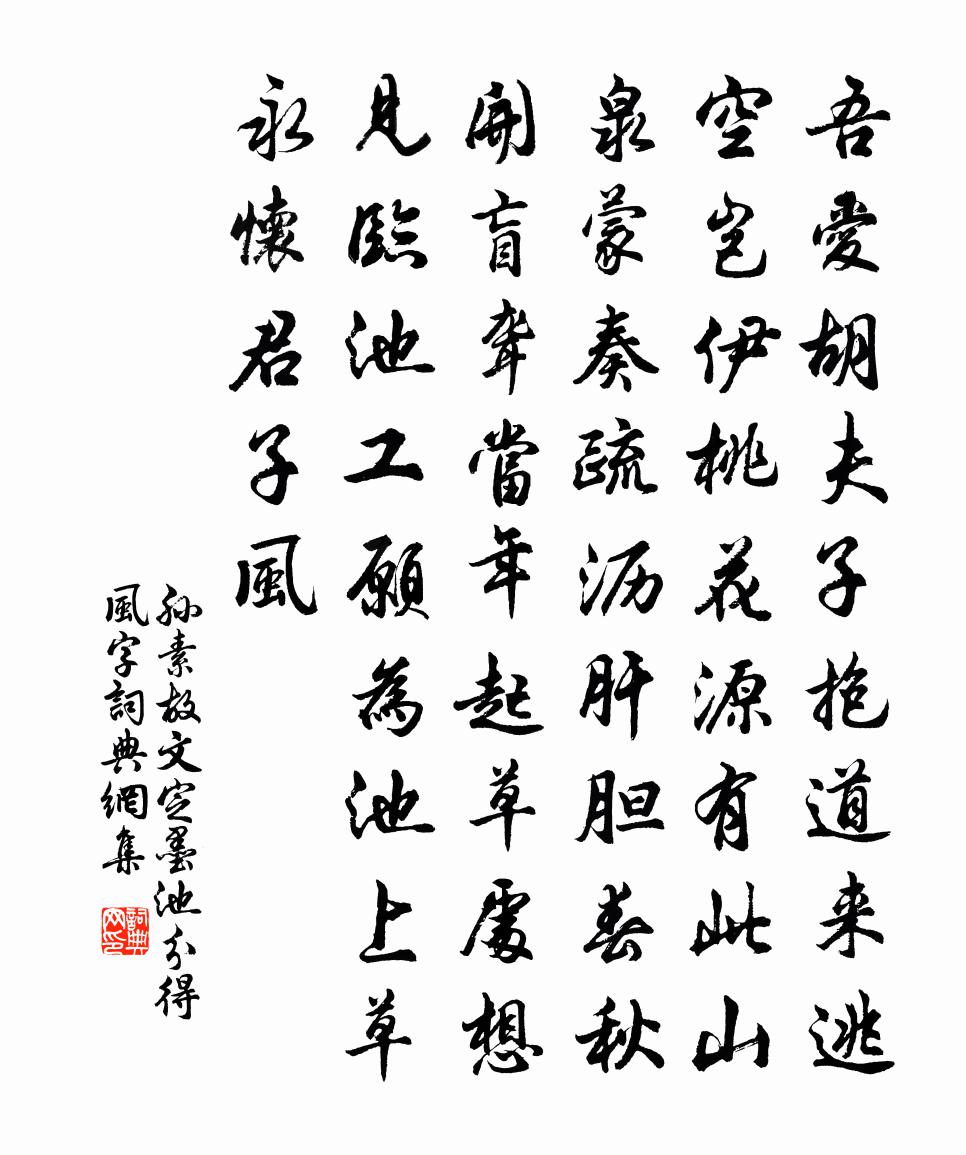 吾愛胡夫子抱道来逃
空豈伊桃花源有此山
泉蒙奏疏沥肝胆春秋
開盲聋當年起草處想
見臨池工願為池上草
永懷君子風
孙素故文定墨池分得
風字詞典網集
詞典网印